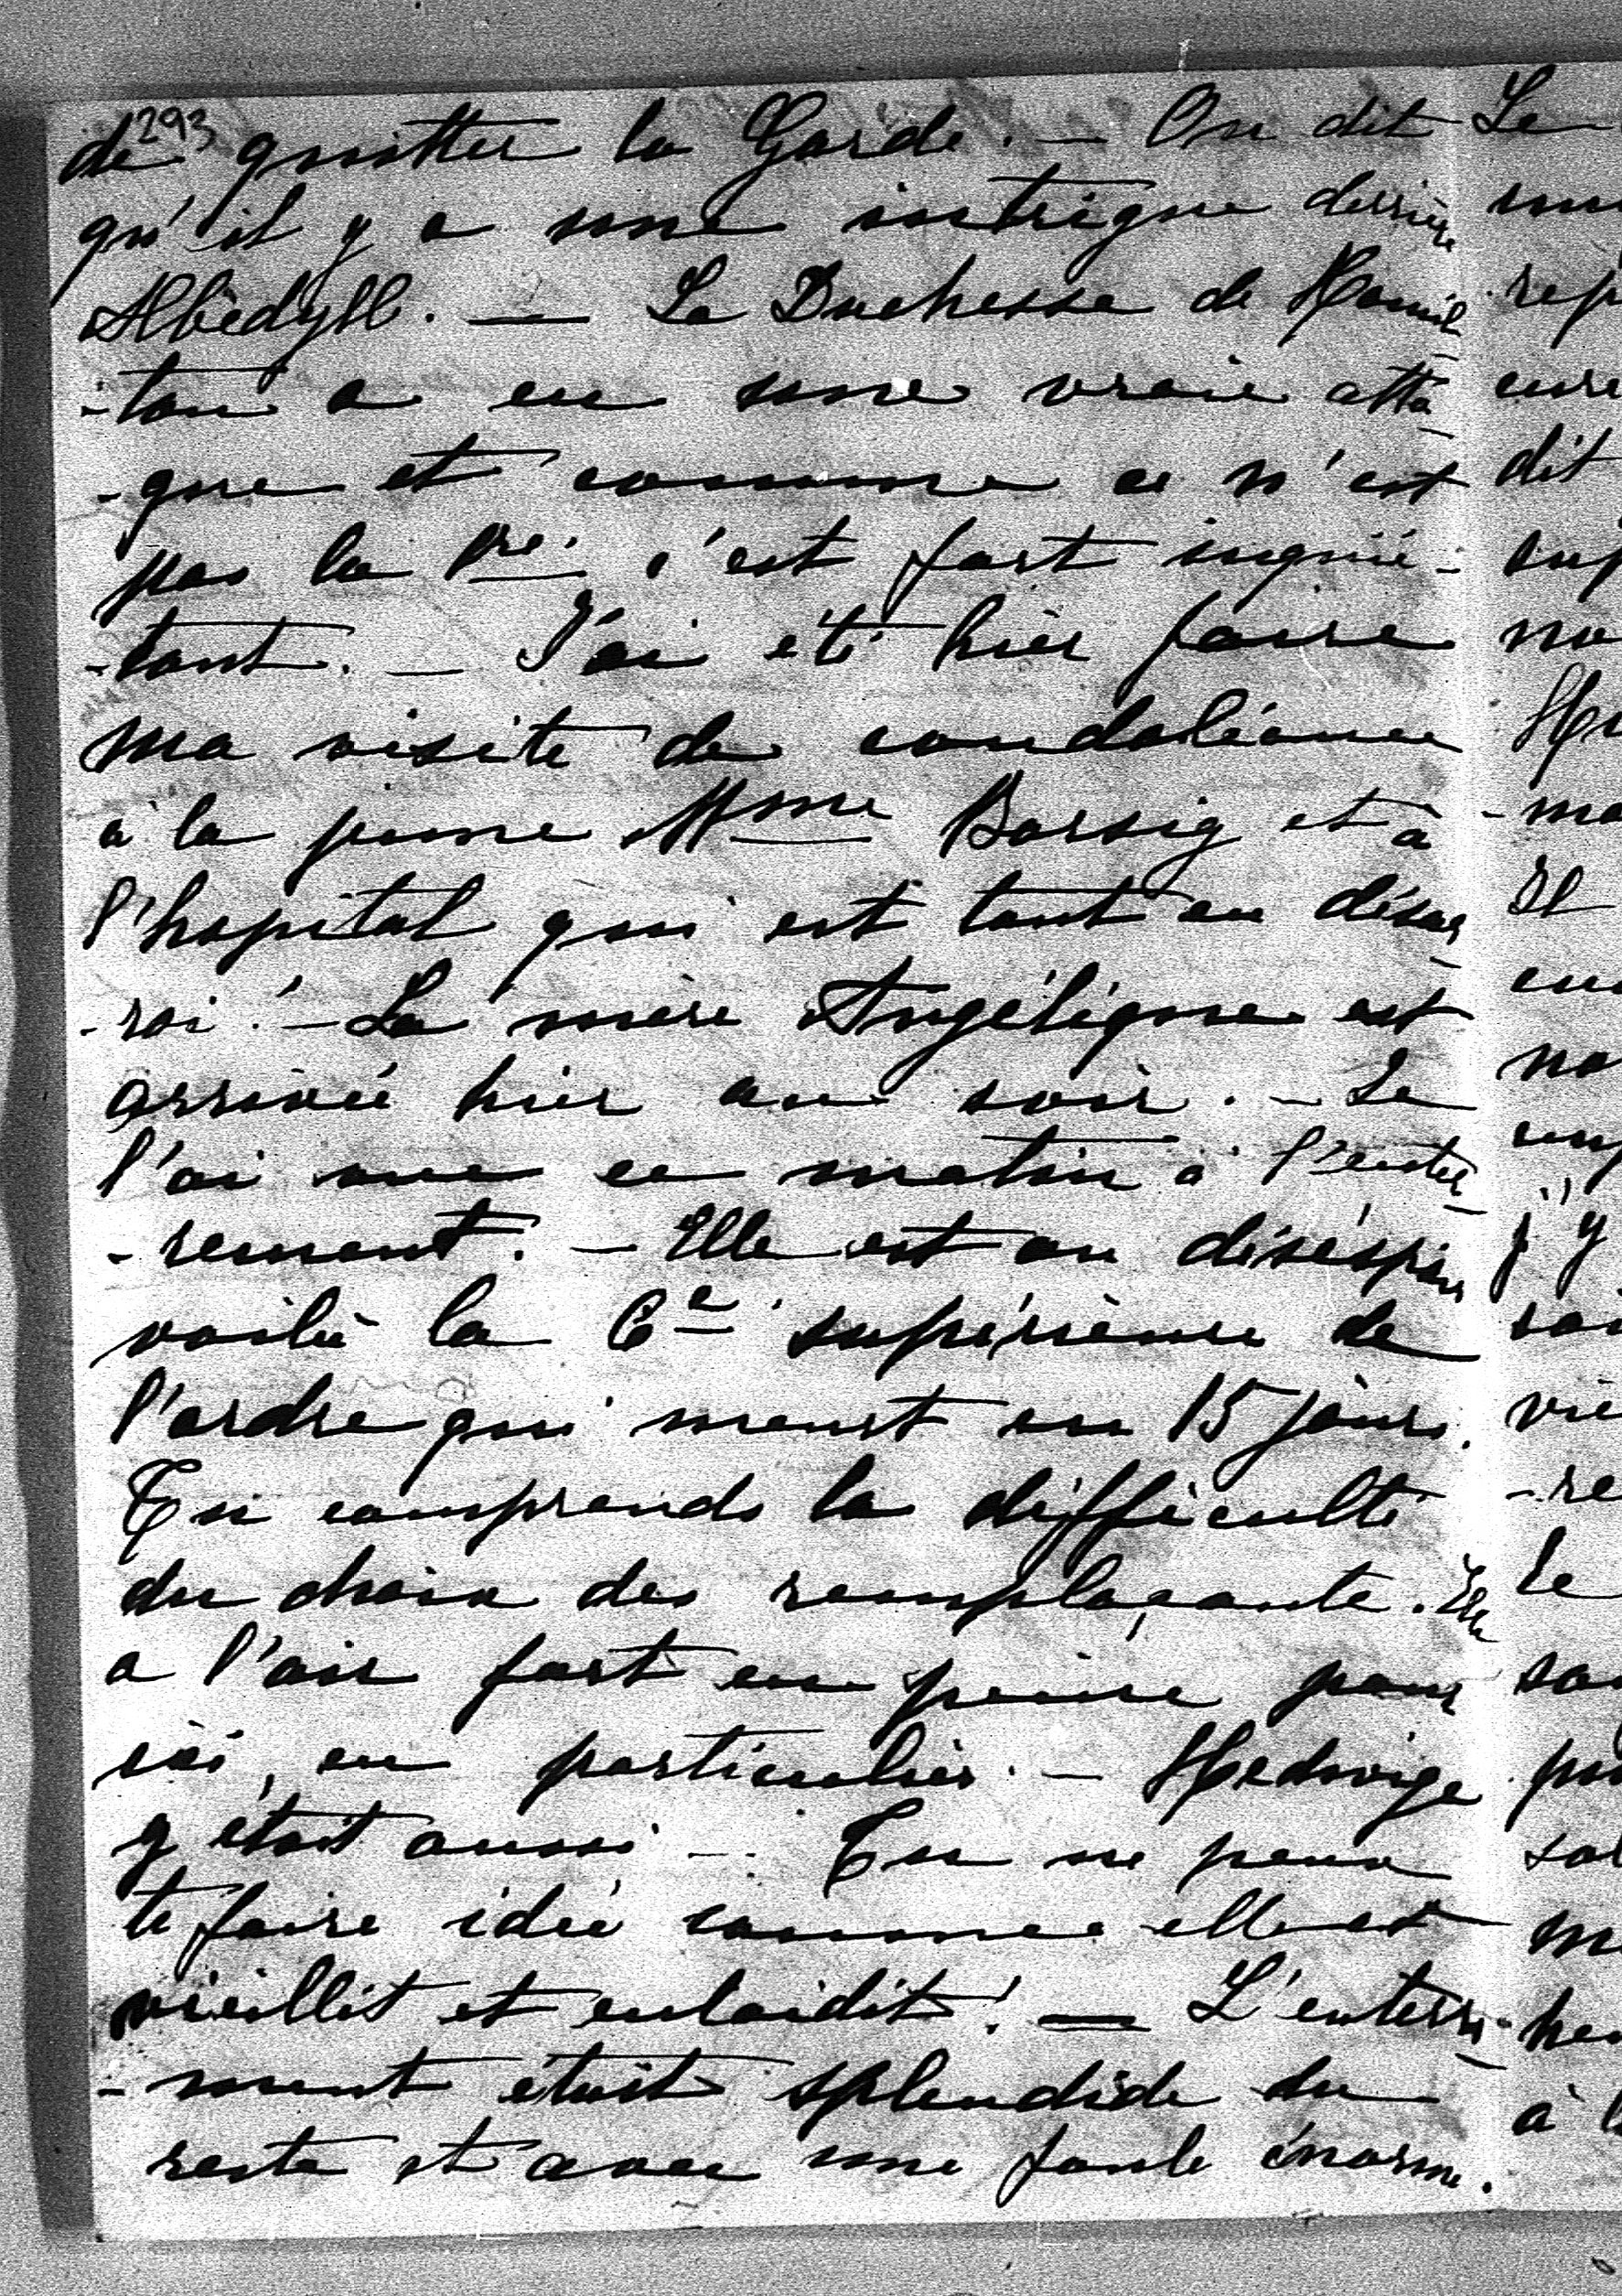 293
de quitter la Garde. — On dit
qu'il y a une intrigue derrière
Albedyll. — La Duchesse de Hamil
-ton a eu une vraie atta
-que et comme ce n'est
pas la 1re. c'est fort inquié-
-tant. — J'ai été hier faire
ma visite de condoléance
à la jeune Mme Borsig et à
l'hopital qui est tout en désar
-roi. — La mère Angélique est
arrivée hier au soir. — Je
l'ai vue ce matin à l'enter
-rement. — Elle est au désespoir
voilà la 6e supérieure de
l'ordre qui meurt en 15 jours.
Tu comprends la difficulté
du choix des remplaçante. Elle
a l'air fort en peine pour
ici, en particulier. — Hedwige
y était aussi — Tu ne peux
te faire idée comme elle est
vieillit et enlaidit! — L'enterre
-ment était splendide du
reste et avec une foule énorme.